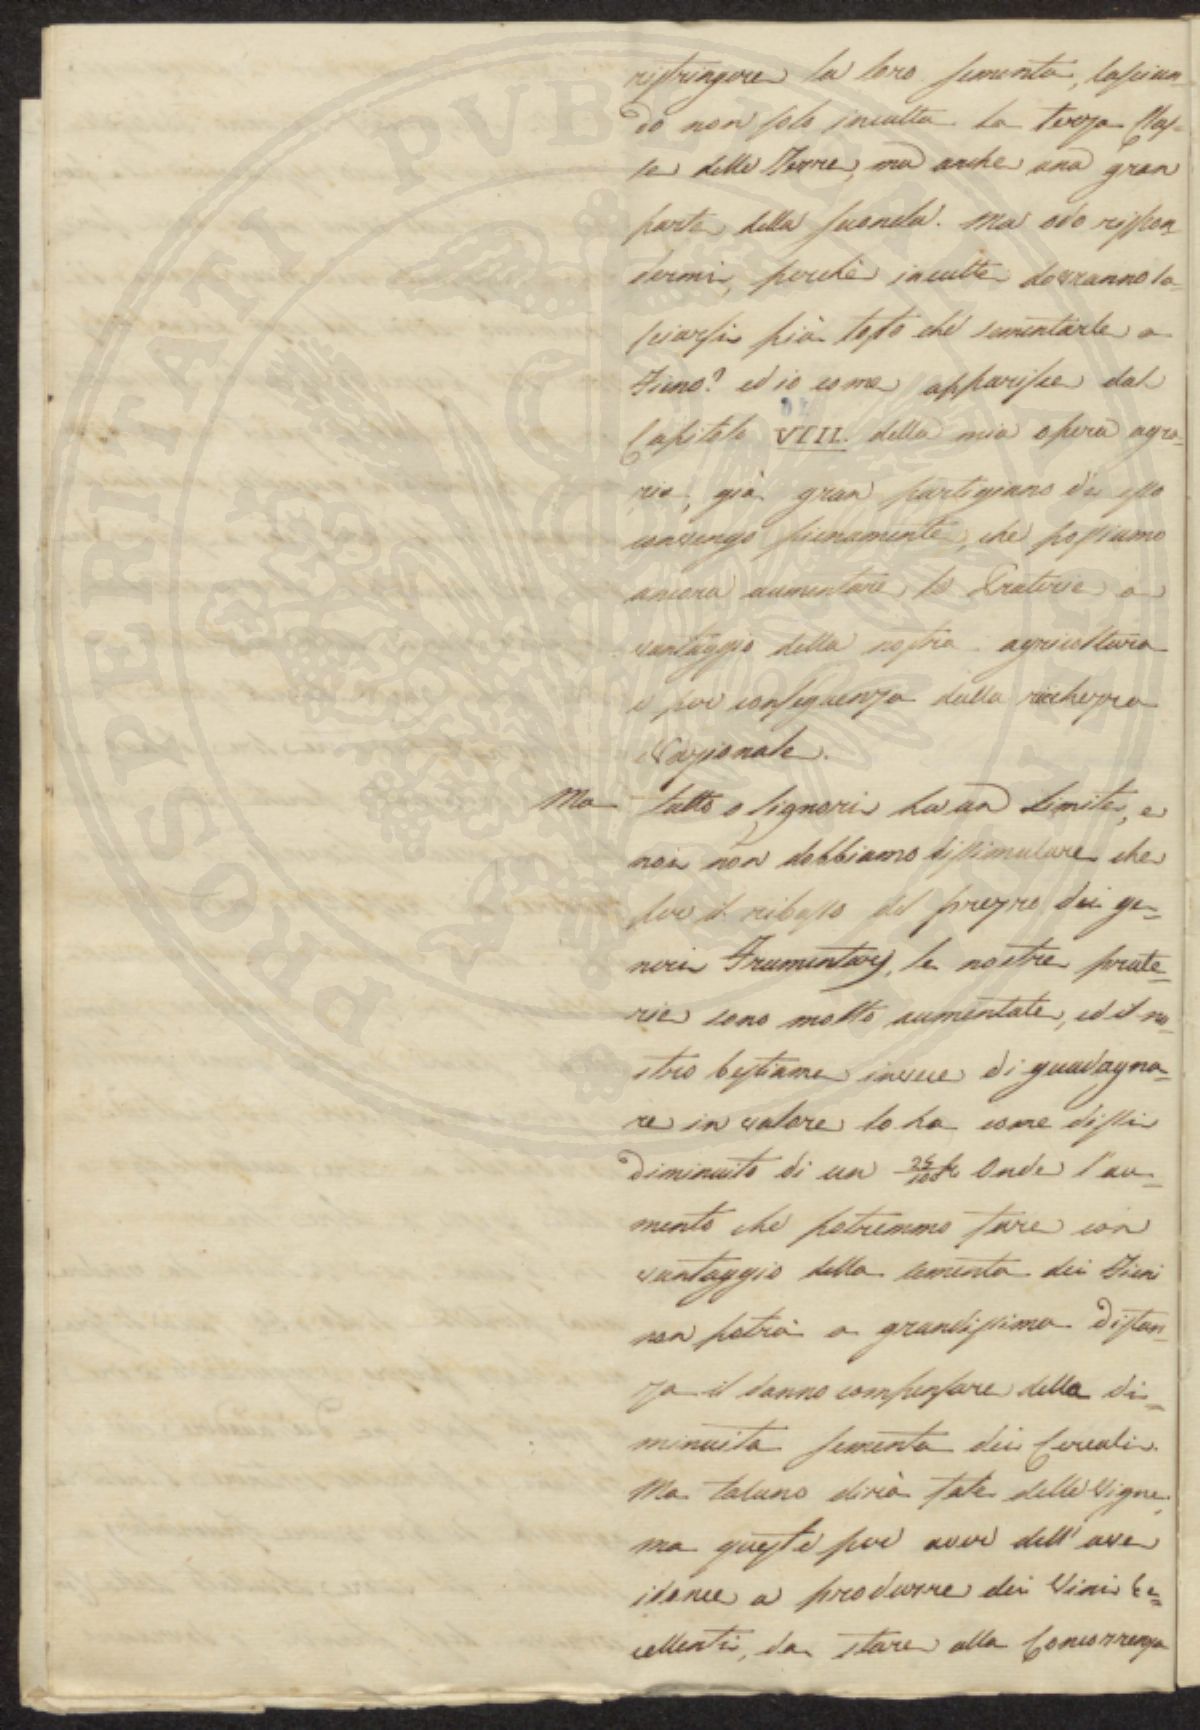 ristringere la loro sementa, lascian-
do non solo inculta la terza Clas-
se delle Terre, ma anche una gran
parte della seconda. Ma odo rispon-
dermi, perchè inculte dovranno la-
sciarsi più tosto che sementarle a
Fieno? ed io come apparisce dal
Capitolo VIII. della mia opera agra-
ria, già gran partigiano di esso
convengo pienamente, che possiamo
ancora aumentare le Praterie a
vantaggio della nostra agricoltura
e per conseguenza della ricchezza
Nazionale.
Ma tutto o Signori ha un limite, e
noi non dobbiamo dissimulare che
per il ribasso del prezzo dei ge-
neri Frumentarj, le nostre prate-
rie sono molto aumentate, ed il no-
stro bestiame invece di guadagna-
re in valore lo ha come dissi
diminuito di un 25/100 Onde l'au-
mento che potremmo fare con
vantaggio della sementa dei Fieni
non potrà a grandissima distan-
za il danno compensare della di-
minuita sementa dei Cereali.
Ma taluno dirà fate delle Vigne,
ma queste per aver dell'uve
idonee a produrre dei Vini Ec-
cellenti, da stare alla Concorrenza
PROSPERITATI PUBLICAE